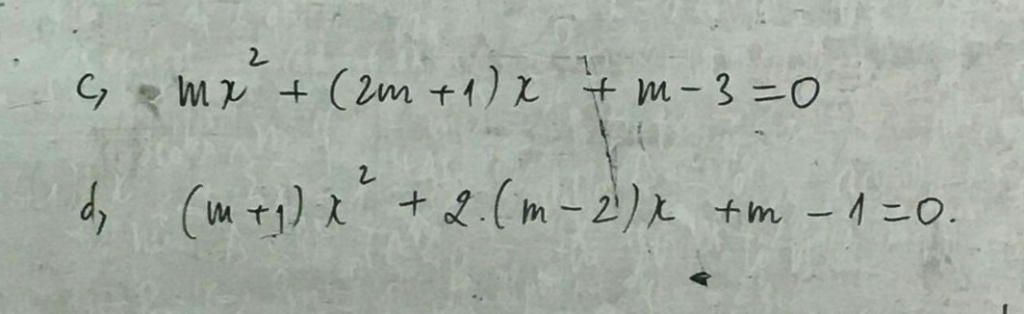 c, mx² + (2m + 1)x + m - 3 = 0
d, (m + 1)x² + 2.(m - 2)x + m - 1 = 0.